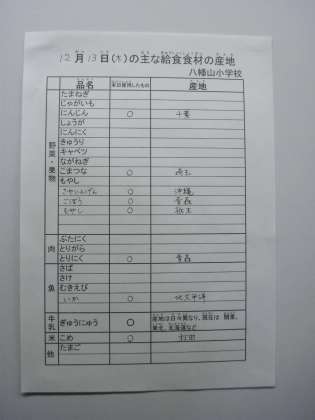 12月13日(木)の主な給食食材の産地
八幡山小学校
品名 本日使用したもの 産地
野菜・果物
たまねぎ
じゃがいも
にんじん ○ 千葉
しょうが
にんにく
きゅうり
キャベツ
ながねぎ
こまつな ○ 埼玉
もやし
さやいんげん ○ 沖縄
ごぼう ○ 青森
もやし ○
肉
ぶたにく
とりがら
とりにく ○ 青森
魚
さば
さけ
むきえび
いか ○ 北太平洋
牛乳 ぎゅうにゅう ○ 産地は日々異なり、現在は 関東、
東北、北海道など
米 こめ ○ 秋田
他 たまご